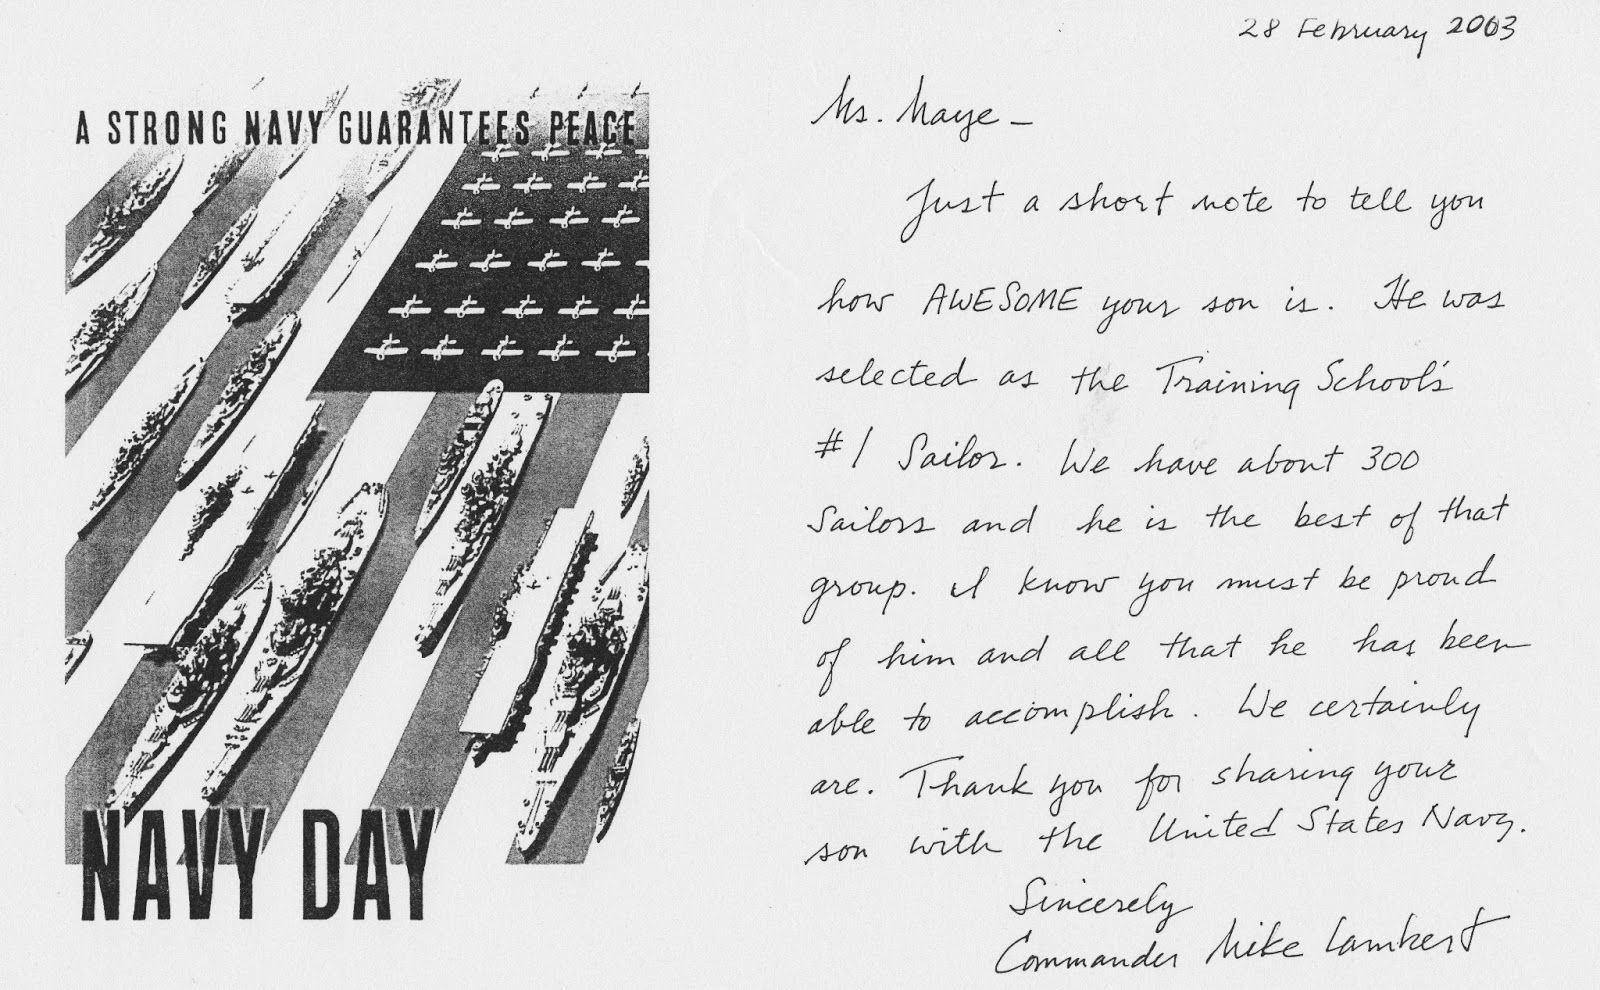 A STRONG NAVY GUARANTEES PEACE
NAVY DAY
28 February 2003
Ms. Maye –
Just a short note to tell you
how AWESOME your son is. He was
selected as the Training School's
#1 Sailor. We have about 300
Sailors and he is the best of that
group. I know you must be proud
of him and all that he has been
able to accomplish. We certainly
are. Thank you for sharing your
son with the United States Navy.
Sincerely
Commander Mike Lambert